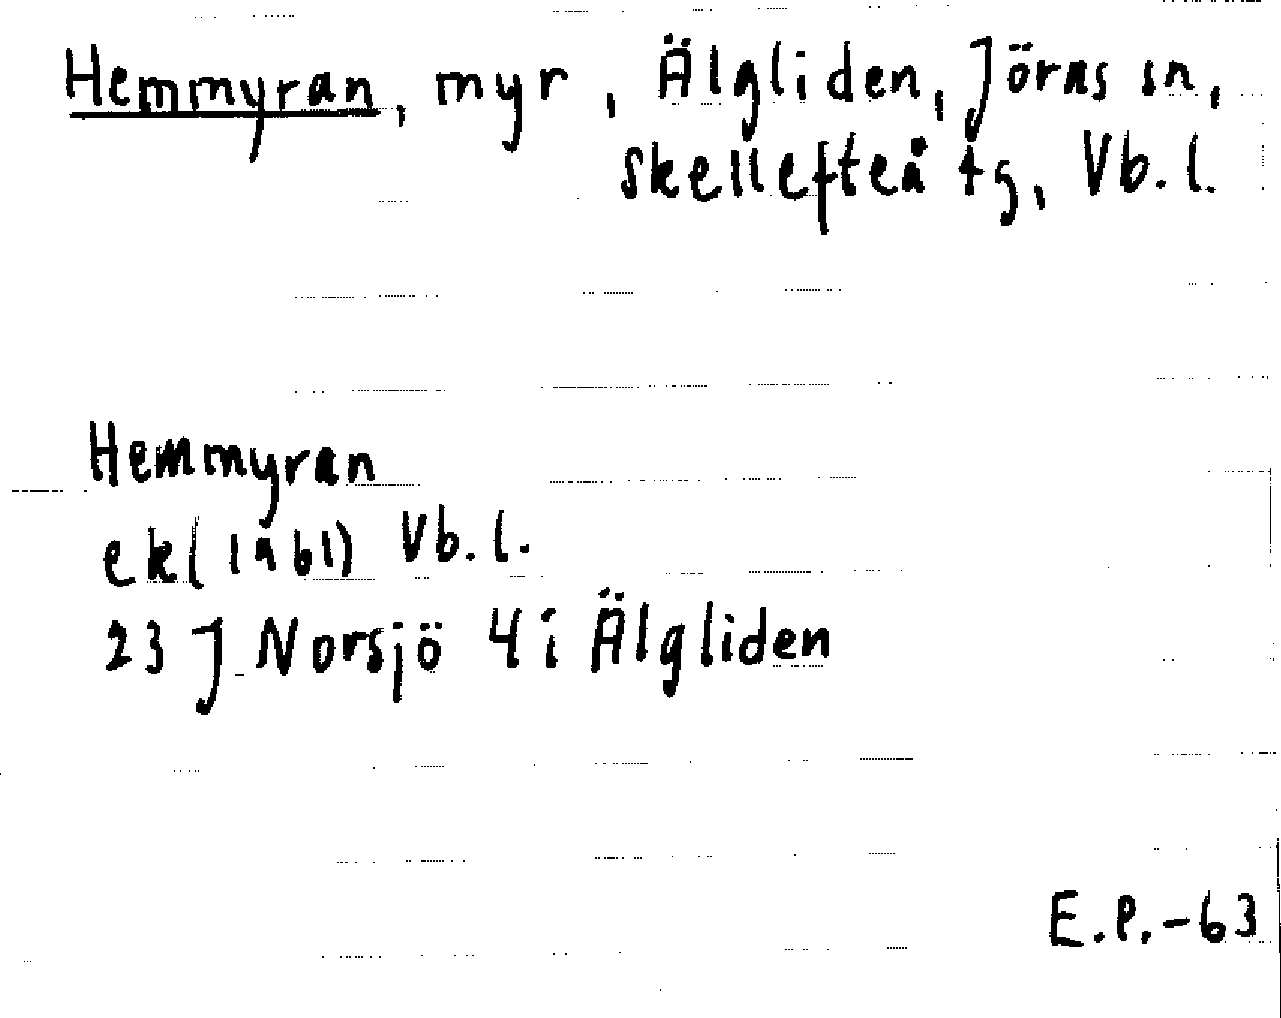 Hemmyran, myr, Älgliden, Jörns sn,
Skellefteå tg, Vb.l.
Hemmyran
ek(1961) Vb.l.
23 J Norsjö 4 i Älgliden
E.P.-63